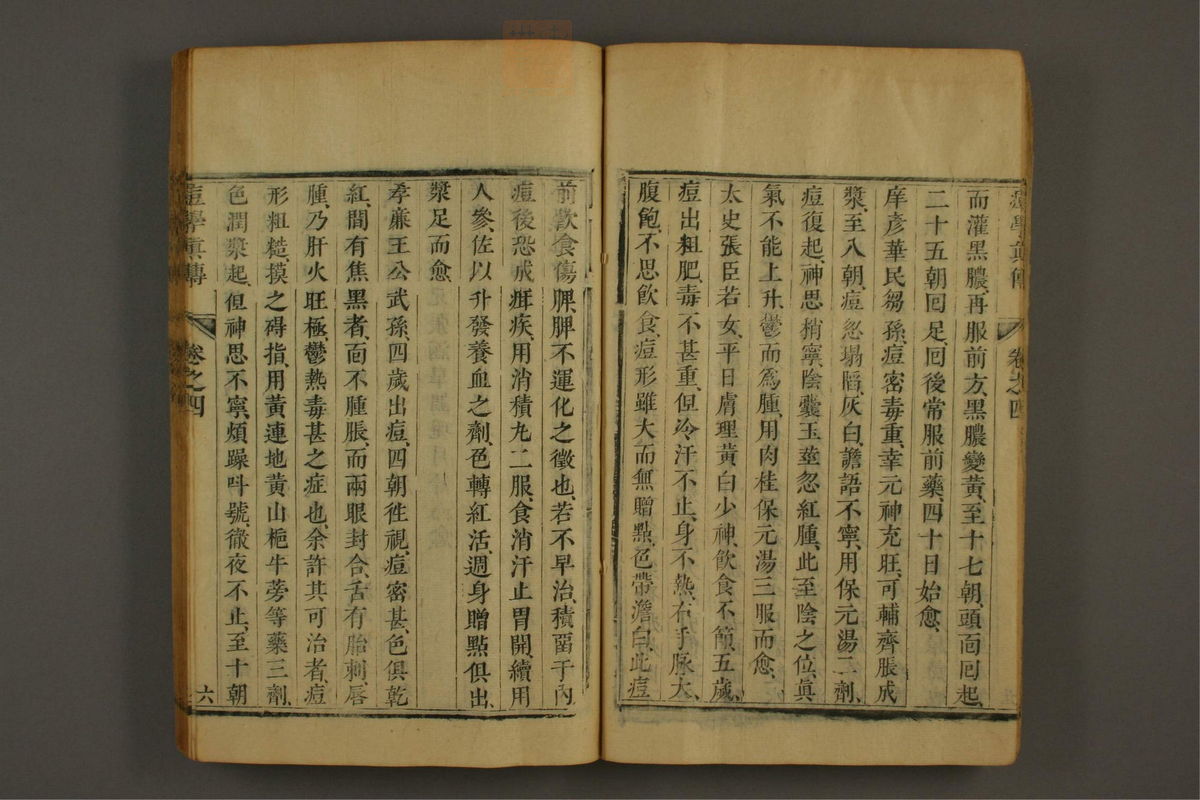 痘學眞傳 卷之四
而灌黑膿再服前方黑膿變黃、至十七朝、頭面囘起、
二十五朝囘足、囘後常服前藥、四十日始愈、
庠彥華民芻孫、痘密毒重、幸元神充旺、可輔齊脹成
漿、至八朝、痘忽塌䧟、灰白、譫語不寧、用保元湯二劑、
痘復起、神思稍寧、陰囊玉莖忽紅腫、此至陰之位、眞
氣不能上升、鬱而爲腫、用肉桂保元湯三服而愈、
太史張臣若女、平日膚理黃白少神、飲食不節、五歲、
痘出粗肥、毒不甚重、但冷汗不止、身不熱、右手脉大、
腹飽、不思飲食、痘形雖大而無贈㸃、色帶澹白、此痘
前飲食傷脾、脾不運化之徵也、若不早治、積畱于內、
痘後恐成疳疾、用消積丸二服、食消汗止胃開、續用
人參、佐以升發養血之劑、色轉紅活、週身贈㸃俱出、
漿足而愈、
孝廉王公武孫、四歲出痘、四朝徃視、痘密甚、色俱乾
紅、間有焦黑者、面不腫脹、而兩眼封合、舌有胎刺、唇
腫、乃肝火旺極、鬱熱毒甚之症也、余許其可治者、痘
形粗糙、摸之碍指、用黃連地黃山梔牛蒡等藥三劑、
色潤漿起、但神思不寧、煩躁呌號、徹夜不止、至十朝
痘學眞傳 卷之四 六